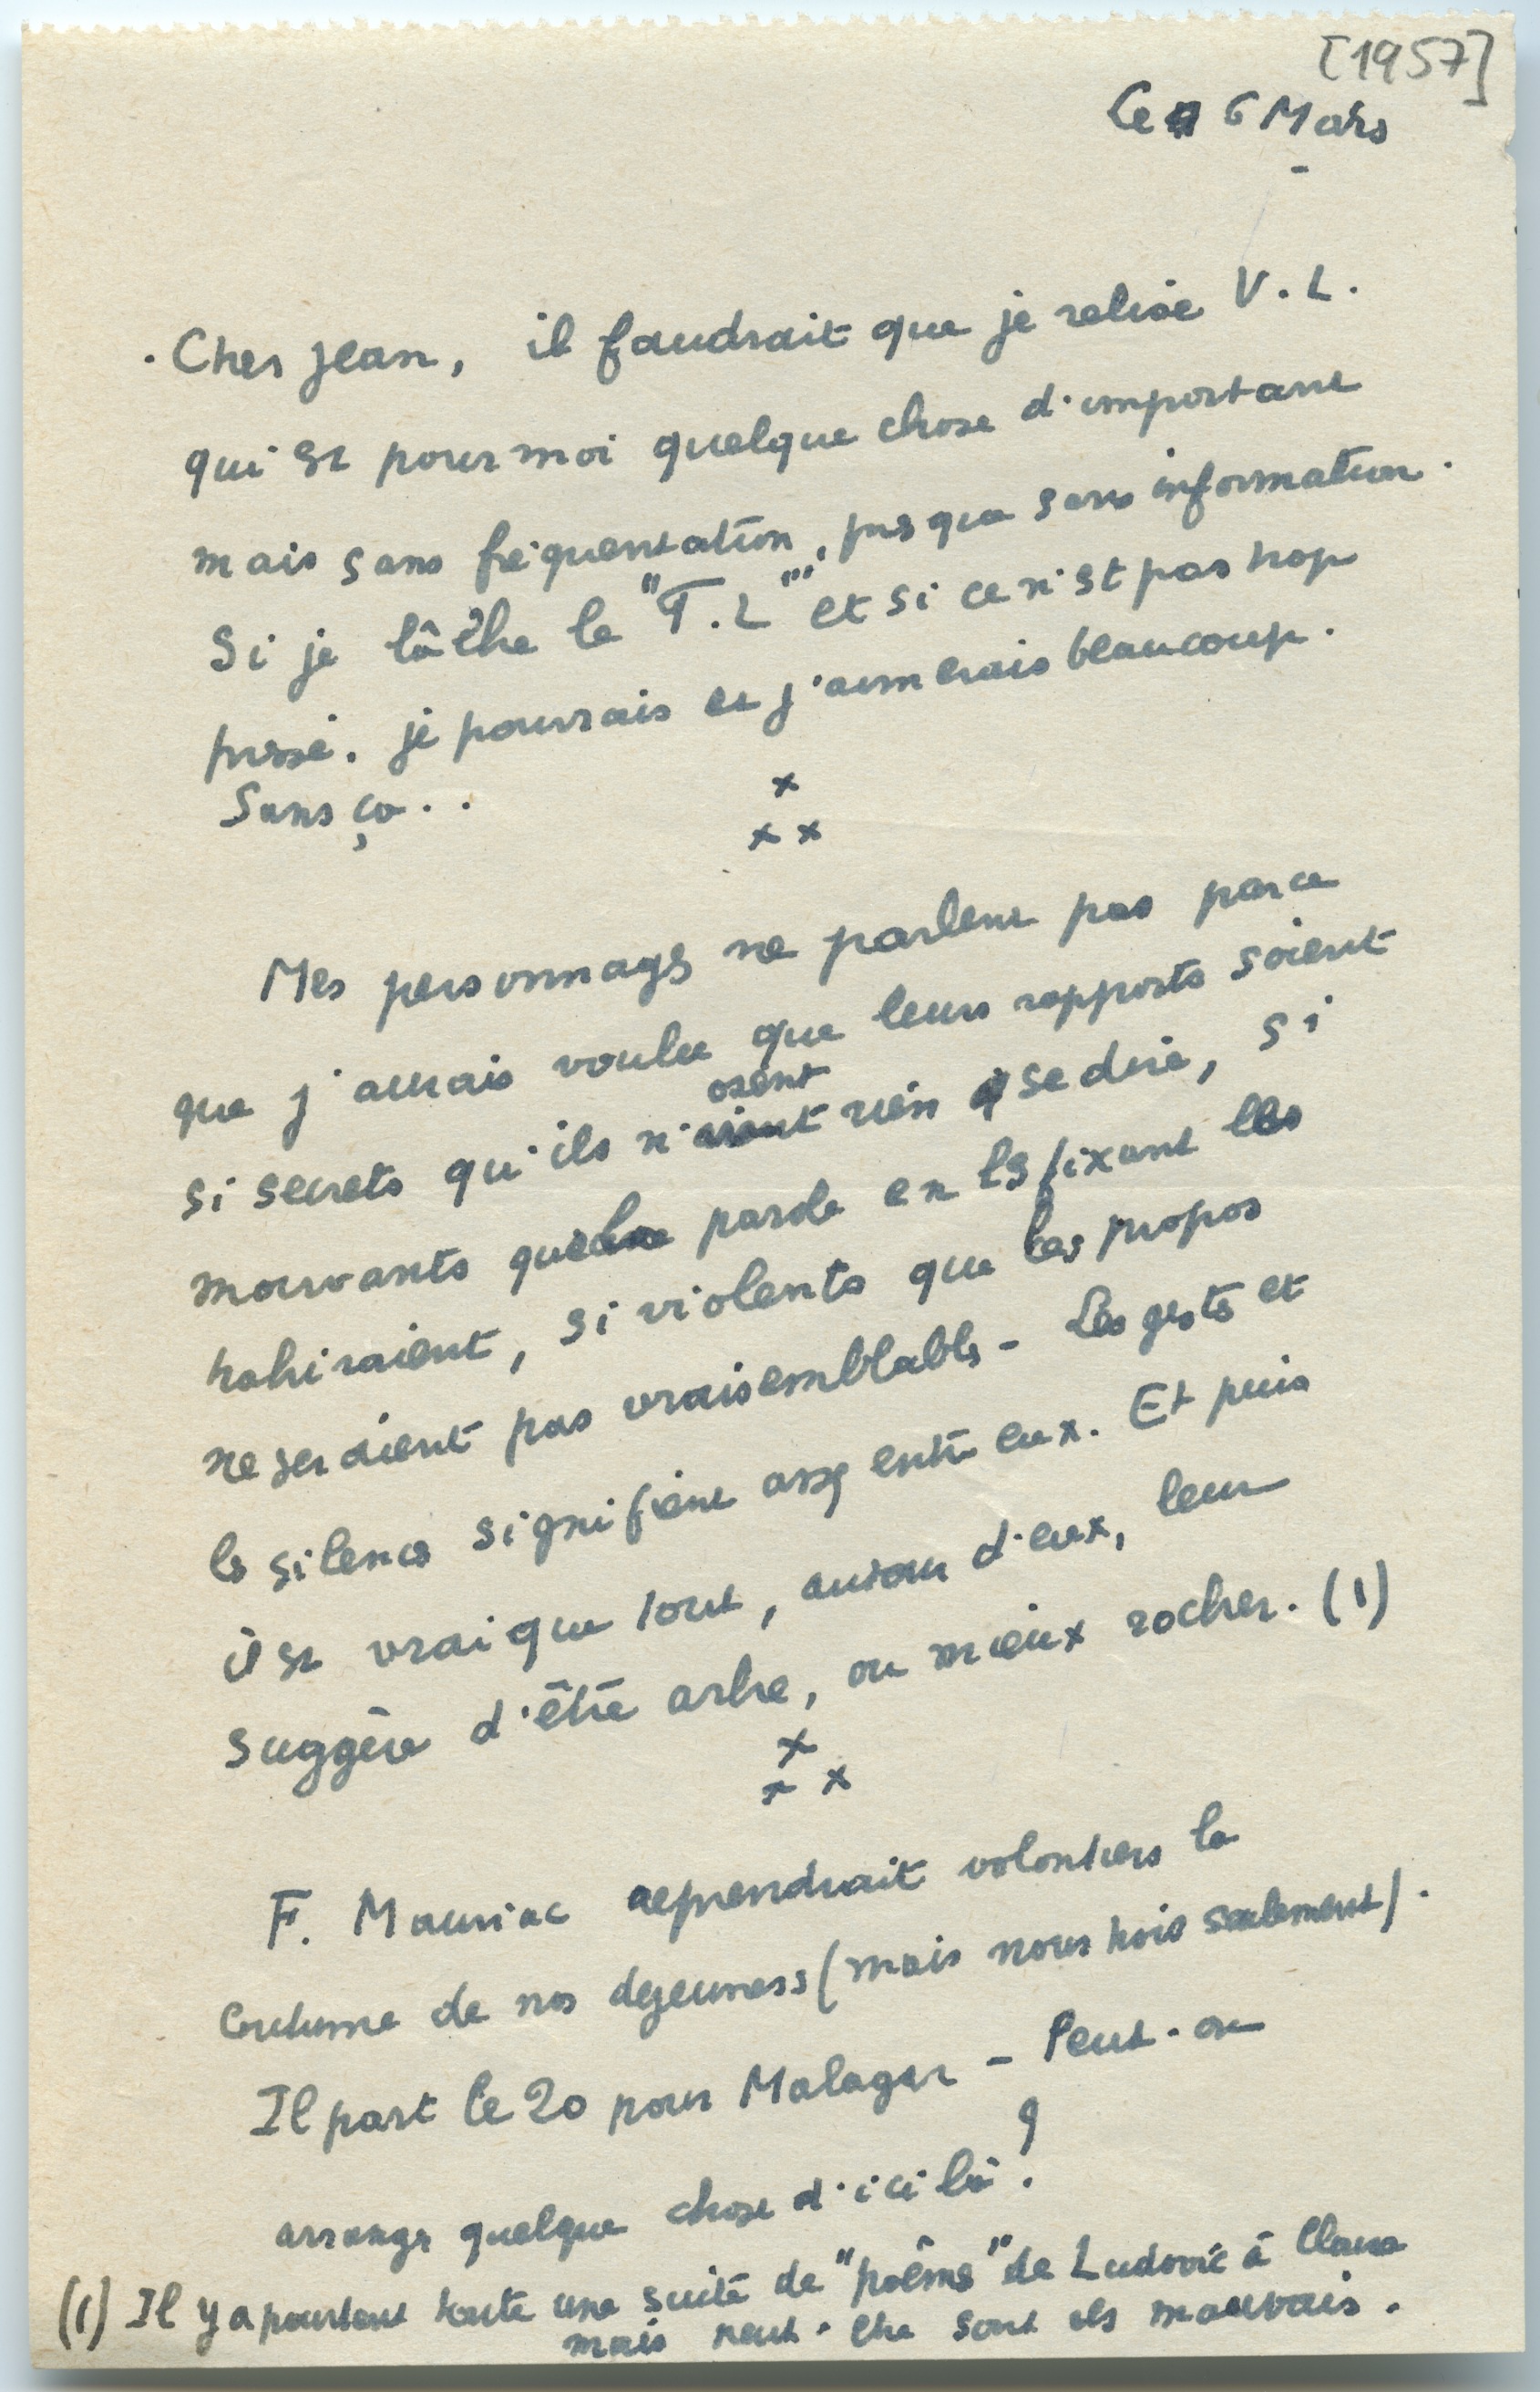 [1957]
Le 6 Mars
. Cher Jean, il faudrait que je relise V. L.
qui est pour moi quelque chose d'important
mais sans fréquentation, presque sans information.
Si je lâche le "T. L" et si ce n'est pas trop
pressé. je pourrais et j'aimerais beaucoup.
Sans ça . .
x
x x
Mes personnages ne parlent pas parce
que j'aurais voulu que leurs rapports soient
osent
si secrets qu'ils n' rien se dire, si
mouvants que la parole en les fixant les
trahiraient, si violents que les propos
ne seraient pas vraisemblables - Les gestes et
les silences signifient assez entre eux. Et puis
il est vrai que tout, autour d'eux, leur
suggère d'être arbre, ou mieux rocher. (1)
x
x x
F. Mauriac reprendrait volontiers la
coutume de nos dejeuners (mais nous trois seulement).
Il part le 20 pour Malagar - Peut-on
arranger quelque chose d'ici là ?
(1) Il y a pourtant toute une suite de "poèmes" de Ludovic à Clara
mais peut-être sont ils mauvais.